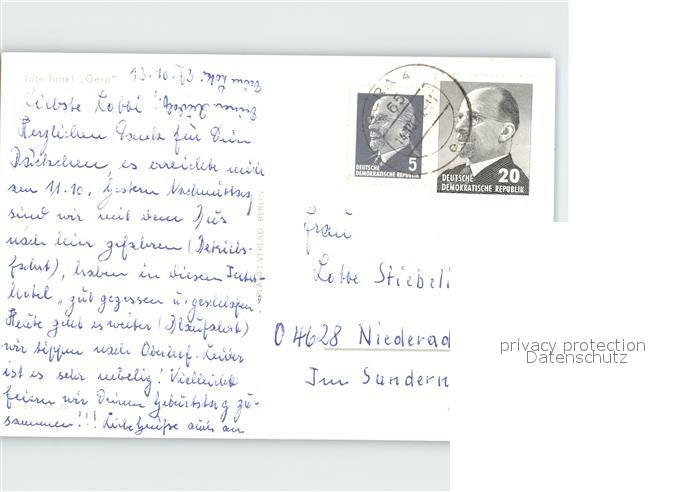 Interhotel „Gera"
13.10.73
Liebste Lobbi!
Herzlichen Dank für Dein
Päckchen, es erreichte mich
am 11.10. Gestern Nachmittag
sind wir mit dem Bus
nach hier gefahren (Betriebs-
fahrt), haben in diesem Inter-
hotel „gut gegessen u. geschlafen".
Heute geht es weiter (Blaufahrt)
wir tippen nach Oberhof. Leider
ist es sehr nebelig! Vielleicht
feiern wir Deinen Geburtstag zu-
sammen!!! Liebe Grüße auch an
PLANET-VERLAG BERLIN
65
5
DEUTSCHE
DEMOKRATISCHE REPUBLIK
20
DEUTSCHE
DEMOKRATISCHE REPUBLIK
Frau
Lobbe Stiebeli
04628 Niederad
Im Sundern
privacy protection
Datenschutz